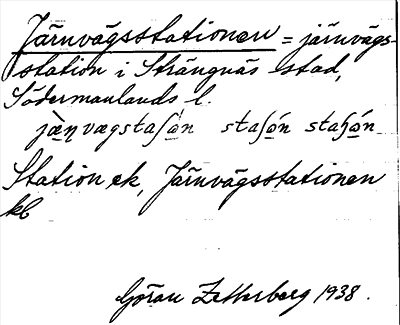 Järnvägsstationen = järnvägs-
station i Strängnäs stad,
Södermanlands l.
stas̸ón
Station ek, Järnvägsstationen
kb
Göran Zetterberg 1938.